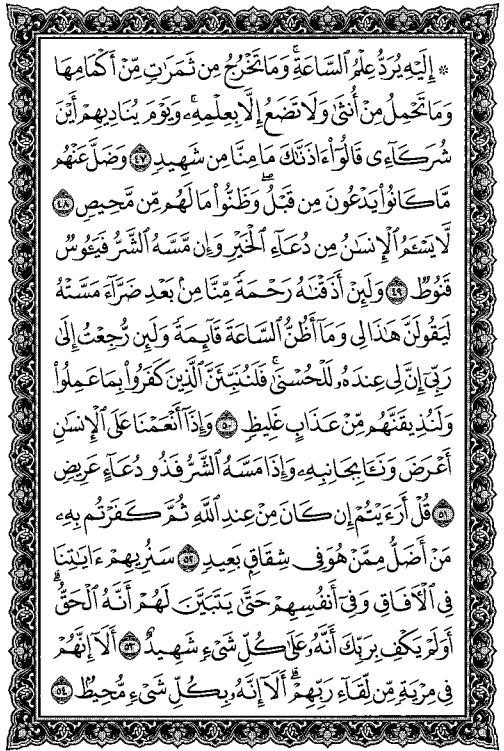 ۞ إِلَيْهِ يُرَدُّ عِلْمُ ٱلسَّاعَةِۚ وَمَا تَخْرُجُ مِن ثَمَرَٰتٍ مِّنْ أَكْمَامِهَا
وَمَا تَحْمِلُ مِنْ أُنثَىٰ وَلَا تَضَعُ إِلَّا بِعِلْمِهِۦۚ وَيَوْمَ يُنَادِيهِمْ أَيْنَ
شُرَكَآءِى قَالُوٓا۟ ءَاذَنَّٰكَ مَا مِنَّا مِن شَهِيدٍ ٤٧ وَضَلَّ عَنْهُم
مَّا كَانُوا۟ يَدْعُونَ مِن قَبْلُۖ وَظَنُّوا۟ مَا لَهُم مِّن مَّحِيصٍ ٤٨
لَّا يَسْـَٔمُ ٱلْإِنسَٰنُ مِن دُعَآءِ ٱلْخَيْرِ وَإِن مَّسَّهُ ٱلشَّرُّ فَيَـُٔوسٌ
قَنُوطٌ ٤٩ وَلَئِنْ أَذَقْنَٰهُ رَحْمَةً مِّنَّا مِنۢ بَعْدِ ضَرَّآءَ مَسَّتْهُ
لَيَقُولَنَّ هَٰذَا لِى وَمَآ أَظُنُّ ٱلسَّاعَةَ قَآئِمَةً وَلَئِن رُّجِعْتُ إِلَىٰ
رَبِّىٓ إِنَّ لِى عِندَهُۥ لَلْحُسْنَىٰۚ فَلَنُنَبِّئَنَّ ٱلَّذِينَ كَفَرُوا۟ بِمَا عَمِلُوا۟
وَلَنُذِيقَنَّهُم مِّنْ عَذَابٍ غَلِيظٍ ٥٠ وَإِذَآ أَنْعَمْنَا عَلَى ٱلْإِنسَٰنِ
أَعْرَضَ وَنَـَٔا بِجَانِبِهِۦ وَإِذَا مَسَّهُ ٱلشَّرُّ فَذُو دُعَآءٍ عَرِيضٍ
٥١ قُلْ أَرَءَيْتُمْ إِن كَانَ مِنْ عِندِ ٱللَّهِ ثُمَّ كَفَرْتُم بِهِۦ
مَنْ أَضَلُّ مِمَّنْ هُوَ فِى شِقَاقٍۭ بَعِيدٍ ٥٢ سَنُرِيهِمْ ءَايَٰتِنَا
فِى ٱلْءَافَاقِ وَفِىٓ أَنفُسِهِمْ حَتَّىٰ يَتَبَيَّنَ لَهُمْ أَنَّهُ ٱلْحَقُّۗ
أَوَلَمْ يَكْفِ بِرَبِّكَ أَنَّهُۥ عَلَىٰ كُلِّ شَىْءٍ شَهِيدٌ ٥٣ أَلَآ إِنَّهُمْ
فِى مِرْيَةٍ مِّن لِّقَآءِ رَبِّهِمْۗ أَلَآ إِنَّهُۥ بِكُلِّ شَىْءٍ مُّحِيطٌۢ ٥٤